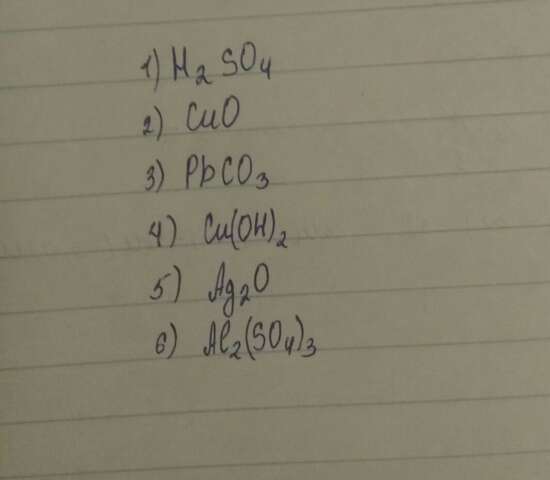 1) H₂SO₄
2) CuO
3) PbCO₃
4) Cu(OH)₂
5) Ag₂O
6) Al₂(SO₄)₃